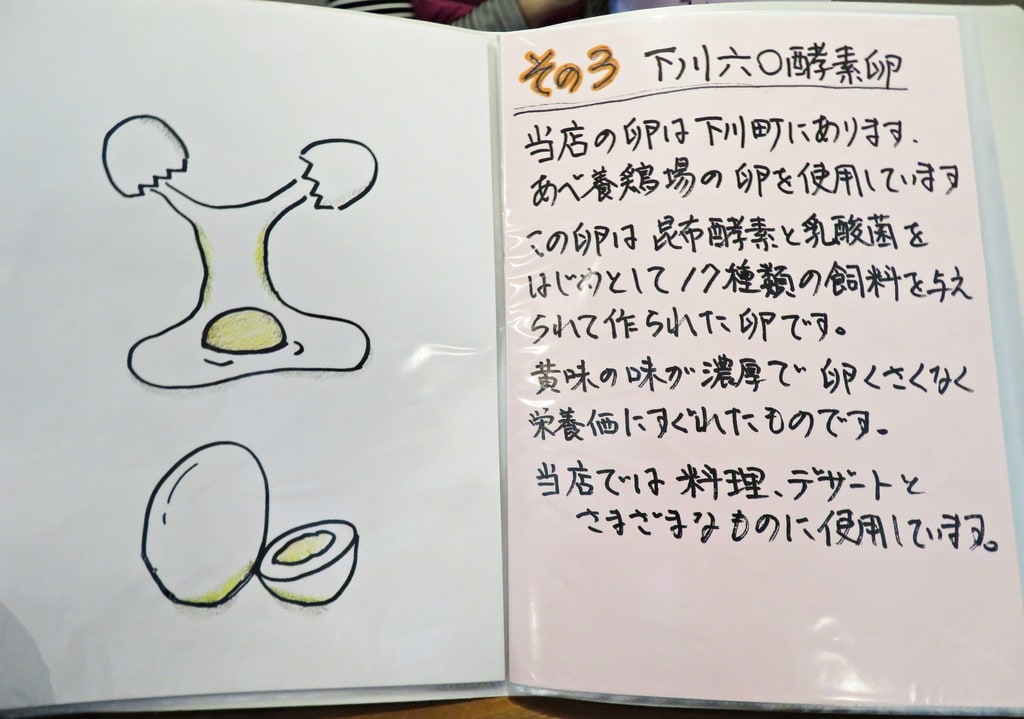 その3 下川六〇酵素卵
当店の卵は下川町にあります、
あべ養鶏場の卵を使用しています
この卵は昆布酵素と乳酸菌を
はじめとして17種類の飼料を与え
られて作られた卵です。
黄味の味が濃厚で卵くさくなく
栄養価にすぐれたものです。
当店では料理、デザートと
さまざまなものに使用しています。